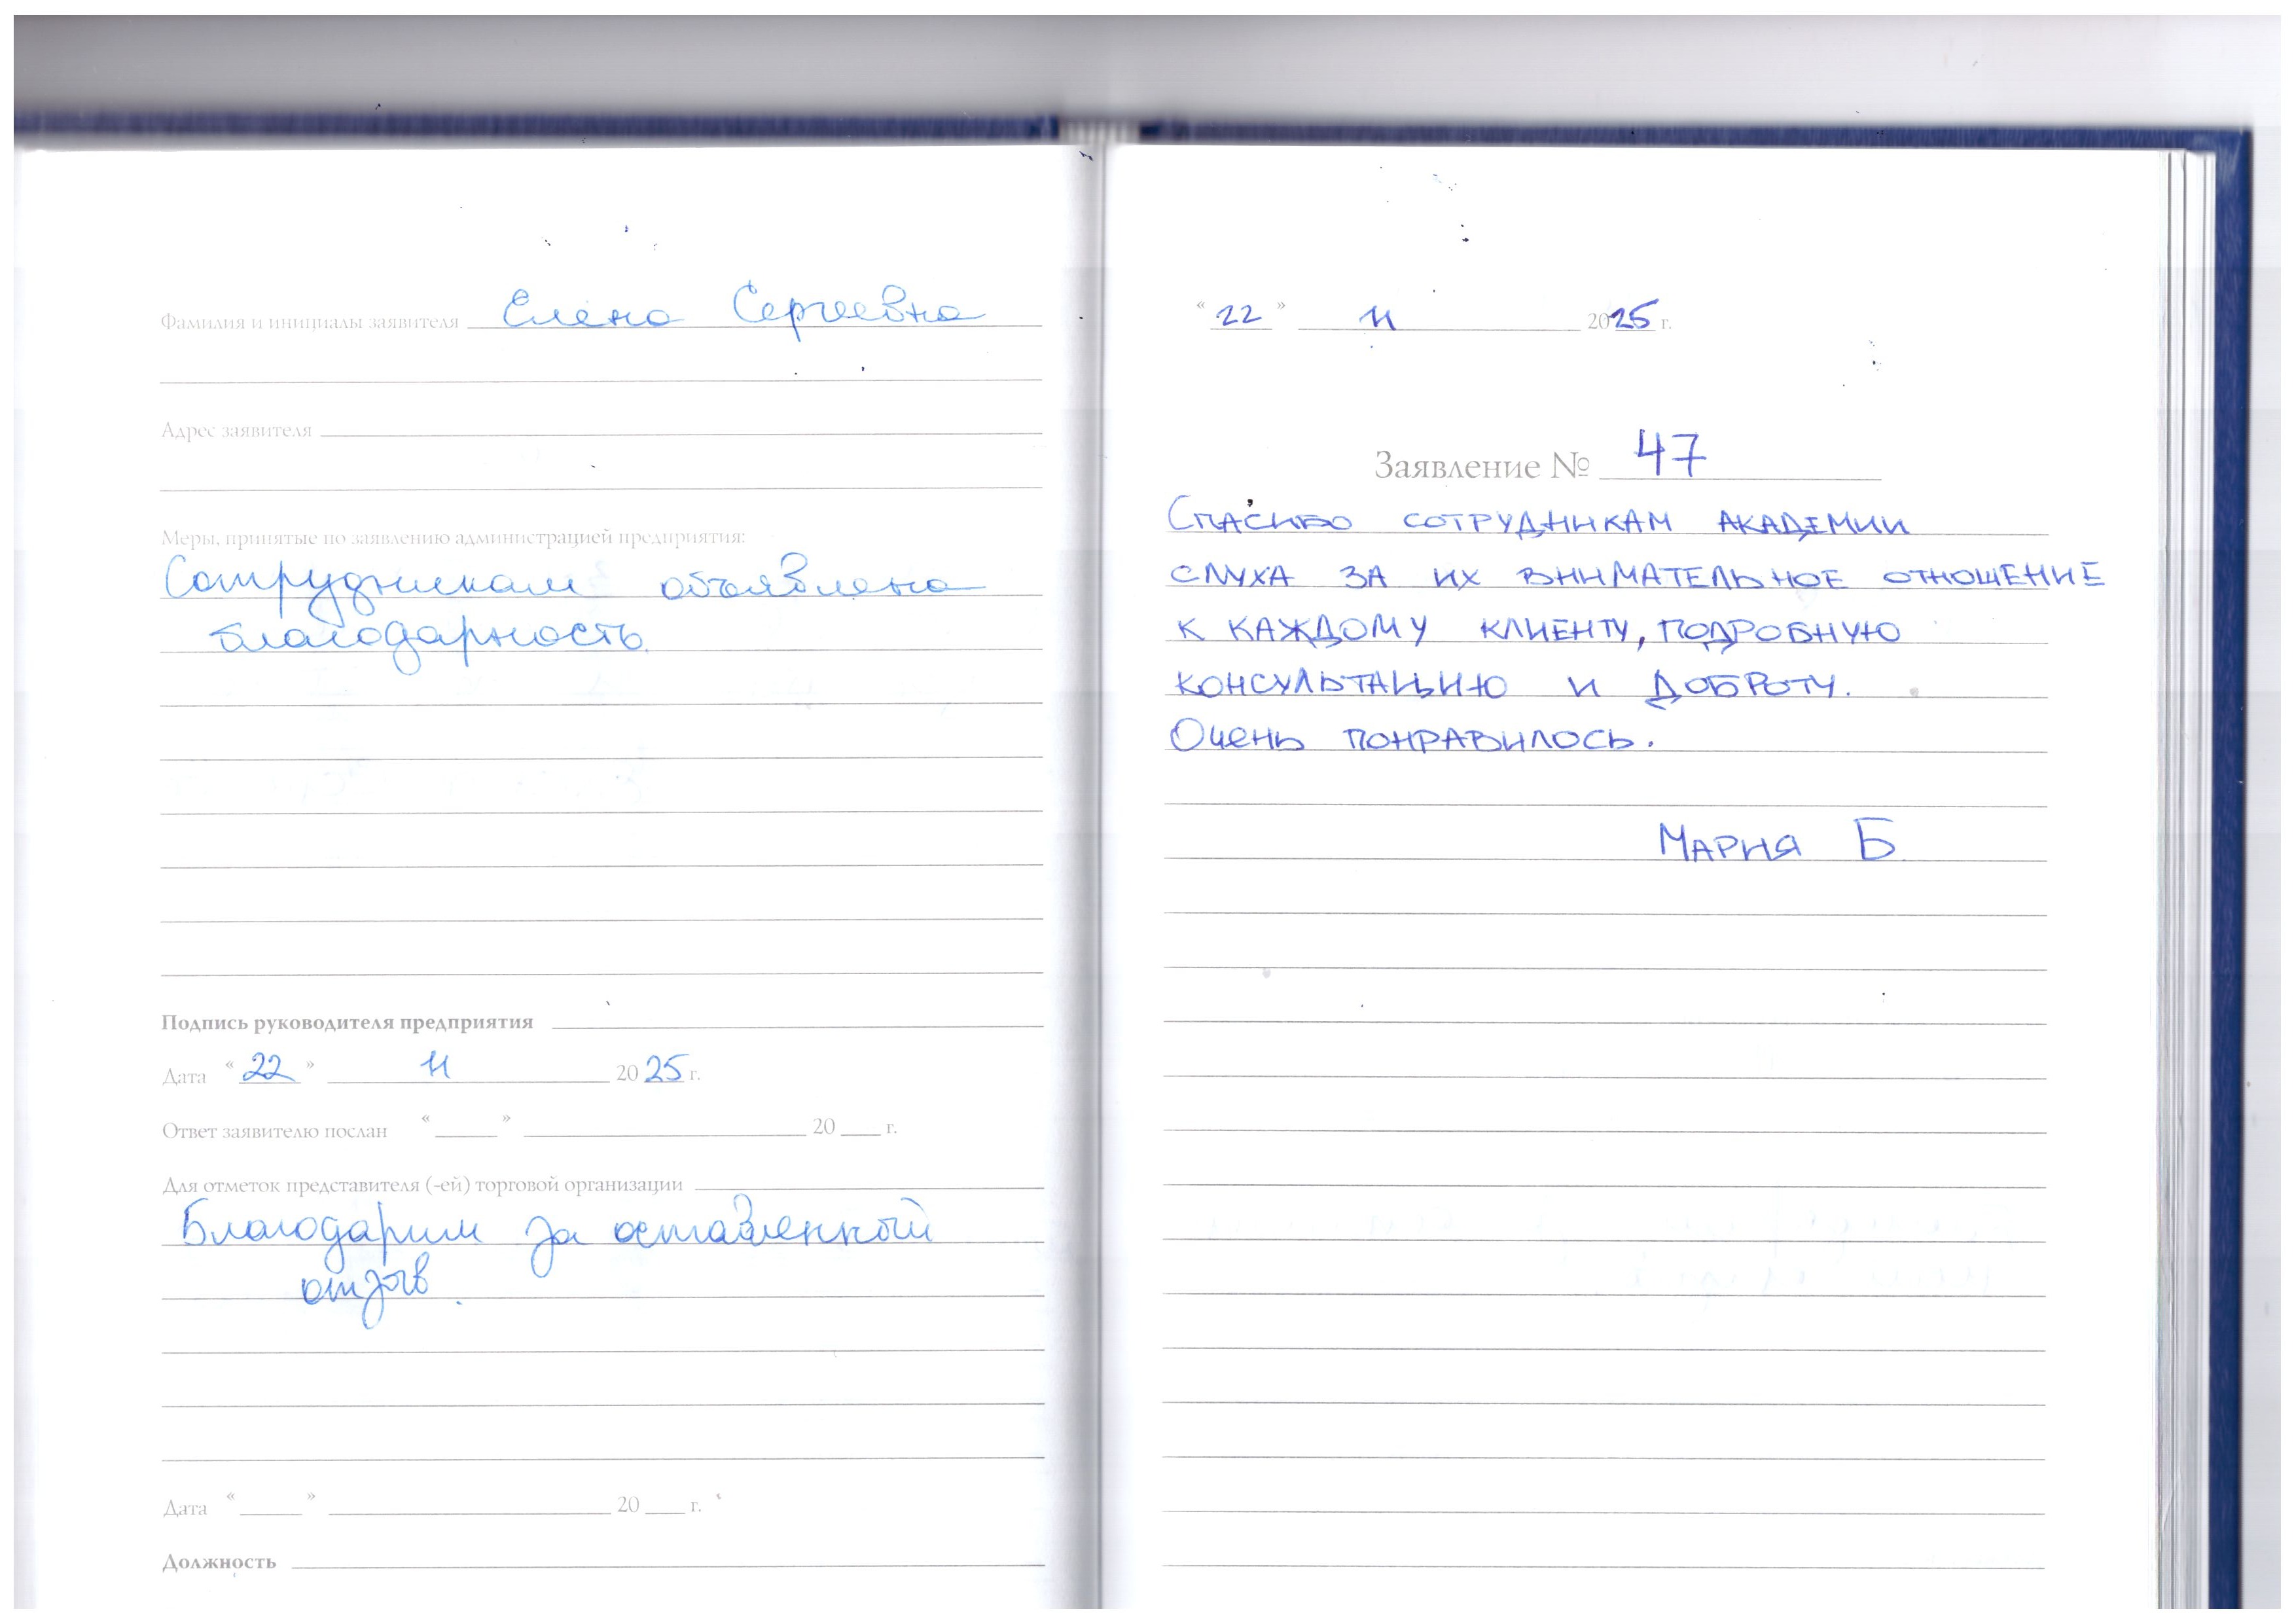 Фамилия и инициалы заявителя Елена Сергеевна
Адрес заявителя
Меры, принятые по заявлению администрацией предприятия:
Сотрудникам объявлена
благодарность.
Подпись руководителя предприятия
Дата "22" 11 2025 г.
Ответ заявителю послан "___" ___ 20___ г.
Для отметок представителя (-ей) торговой организации
Благодарим за оставленный
отзыв.
Дата "___" ___ 20___ г.
Должность
"22" 11 2025 г.
Заявление № 47
Спасибо сотрудникам Академии
слуха за их внимательное отношение
к каждому клиенту, подробную
консультацию и доброту.
Очень понравилось.
Мария Б